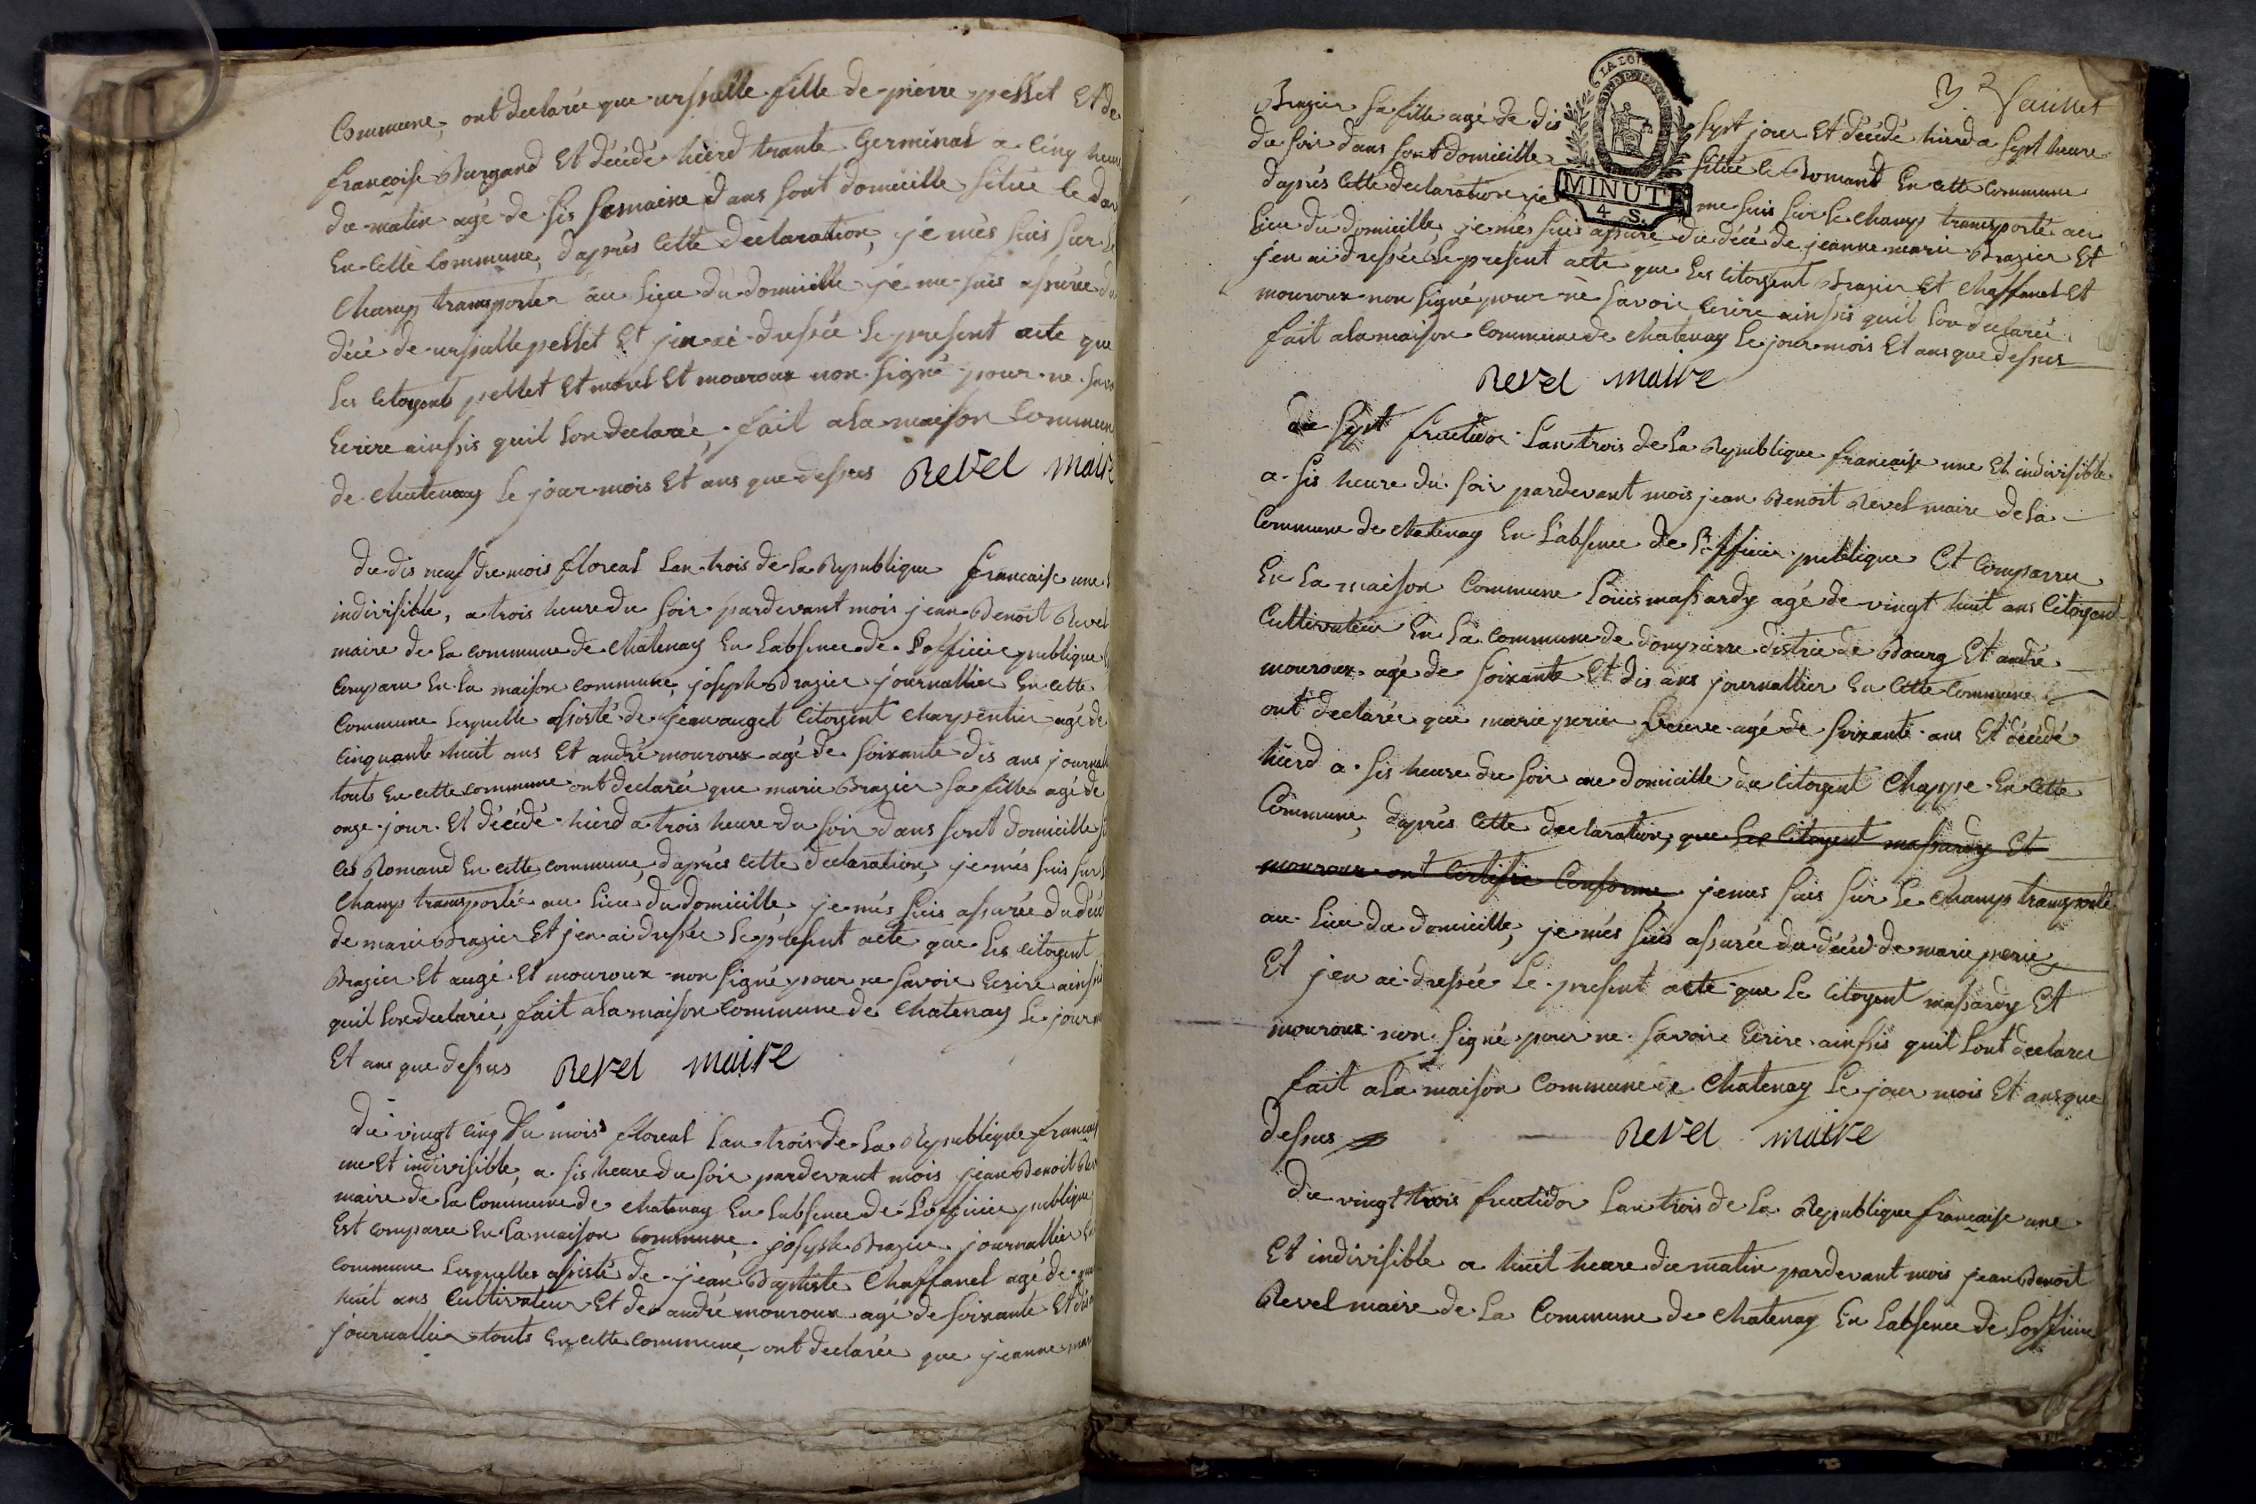 Commune, ont declarée que urssulle fille de pierre pellet Et de
francoise Burgand Et décédé hierd trante Germinal a cinq heure
du matin agé de sis semaine dans sont domicille situé le
En cette commune, d'aprés cette declaration, je més suis sur le
champ transporter au lieu du domicille je me suis assurée du
décé de urssulle pellet Et j'en ai dressée le present acte que
les citoyent pellet Et morel Et mouroux non signé pour ne
Ecrire ainssis quil lon declarée, fait a la maison commune
de chatenay le jour mois Et ans que dessus Revel maire
du dis neuf du mois floreal lan trois de la Republique francaise une
indivisible, a trois heure du soir pardevant mois jean Benoit Revel
maire de la commune de chatenay En labsence de Lofficier publique
comparu En la maison commune, joseph Brazier journallier En cette
commune lesquelle assisté de jean auget citoyent charpentier agé de
cinquante huit ans Et andré mouroux agé de soixante dis ans
touts En cette commune ont declarée que marie Brazier sa fille agé de
onze jour Et décédé hierd a trois heure du soir dans sont domicille
les Romand En cette commune, d'aprés cette declaration, je més suis sur
champ transporté au lieu du domicille, je més suis assurée du
de marie Brazier Et j'en ai dressée le present acte que les citoyent
Brazier Et augé Et mouroux non signé pour ne savoir Ecrire
quil lon declarée, fait a la maison commune de chatenay le jour
Et ans que dessus Revel maire
du vingt cinq du mois floreal lan trois de la Republique
une Et indivisible, a sis heure du soir pardevant mois jean Benoit
maire de la commune de chatenay En labsence de Lofficier publique
Est comparu En la maison commune joseph Brazier journallier
commune lesquelles assisté de jean Baptiste Chaffanel agé de
huit ans Cultivateur Et de andré mouroux agé de soixante Et
journallier touts En cette commune, ont declarée que jeanne
3.e faillet
Brazier sa fille agé de dis sept jour Et décédé hierd a sept heure
du soir dans sont domicille situé le Romand En cette commune
d'aprés cette declaration je me suis sur le champ transporté au
lieu du domicille, je més suis assuré du décé de jeanne marie Brazier Et
j'en ai dressée le present acte que les citoyent Brazier Et chaffanel Et
mouroux non signé pour ne savoir Ecrire ainssis quil lon declarée
fait a la maison commune de chatenay le jour mois Et ans que dessus
LA LOI
MINUTE
4 S.
Revel maire
du sept fructidor lan trois de la Republique francaise une Et indivisible
a sis heure du soir pardevant mois jean Benoit Revel maire de la
commune de chatenay En L'absence de L'officier publique Et comparru
En la maison commune Louis massardy agé de vingt huit ans citoyent
Cultivateur En la commune de dompierre distric de Bourg Et andré
mouroux agé de soixante Et dis ans journallier En cette commune
ont declarée que marie perier veuve agé de soixante ans Et décédé
hierd a sis heure du soir au domicille du citoyent Chappe En cette
Commune, d'aprés cette declaration, que les citoyent massardy Et
mouroux ont certifié conforme, je més suis sur le champ transporté
au lieu du domicille, je més suis assurée du décéd de marie perier
Et j'en ai dressée le present acte que le citoyent massardy Et
mouroux non signé pour ne savoir Ecrire ainssis quil lont declarer
fait a la maison commune de chatenay le jour mois Et ans que
dessus
Revel maire
du vingt trois fructidor lan trois de la Republique francaise une
Et indivisible a huit heure du matin pardevant mois jean Benoit
Revel maire de la commune de chatenay En labsence de Lofficier